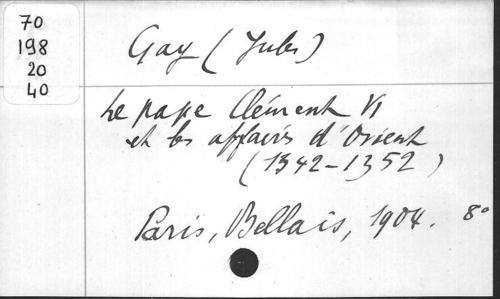 70
198
20
40
Gay (Jules)
Le pape Clément VI
et les affaires d'Orient
(1342-1352)
Paris, Bellais, 1904. 8°